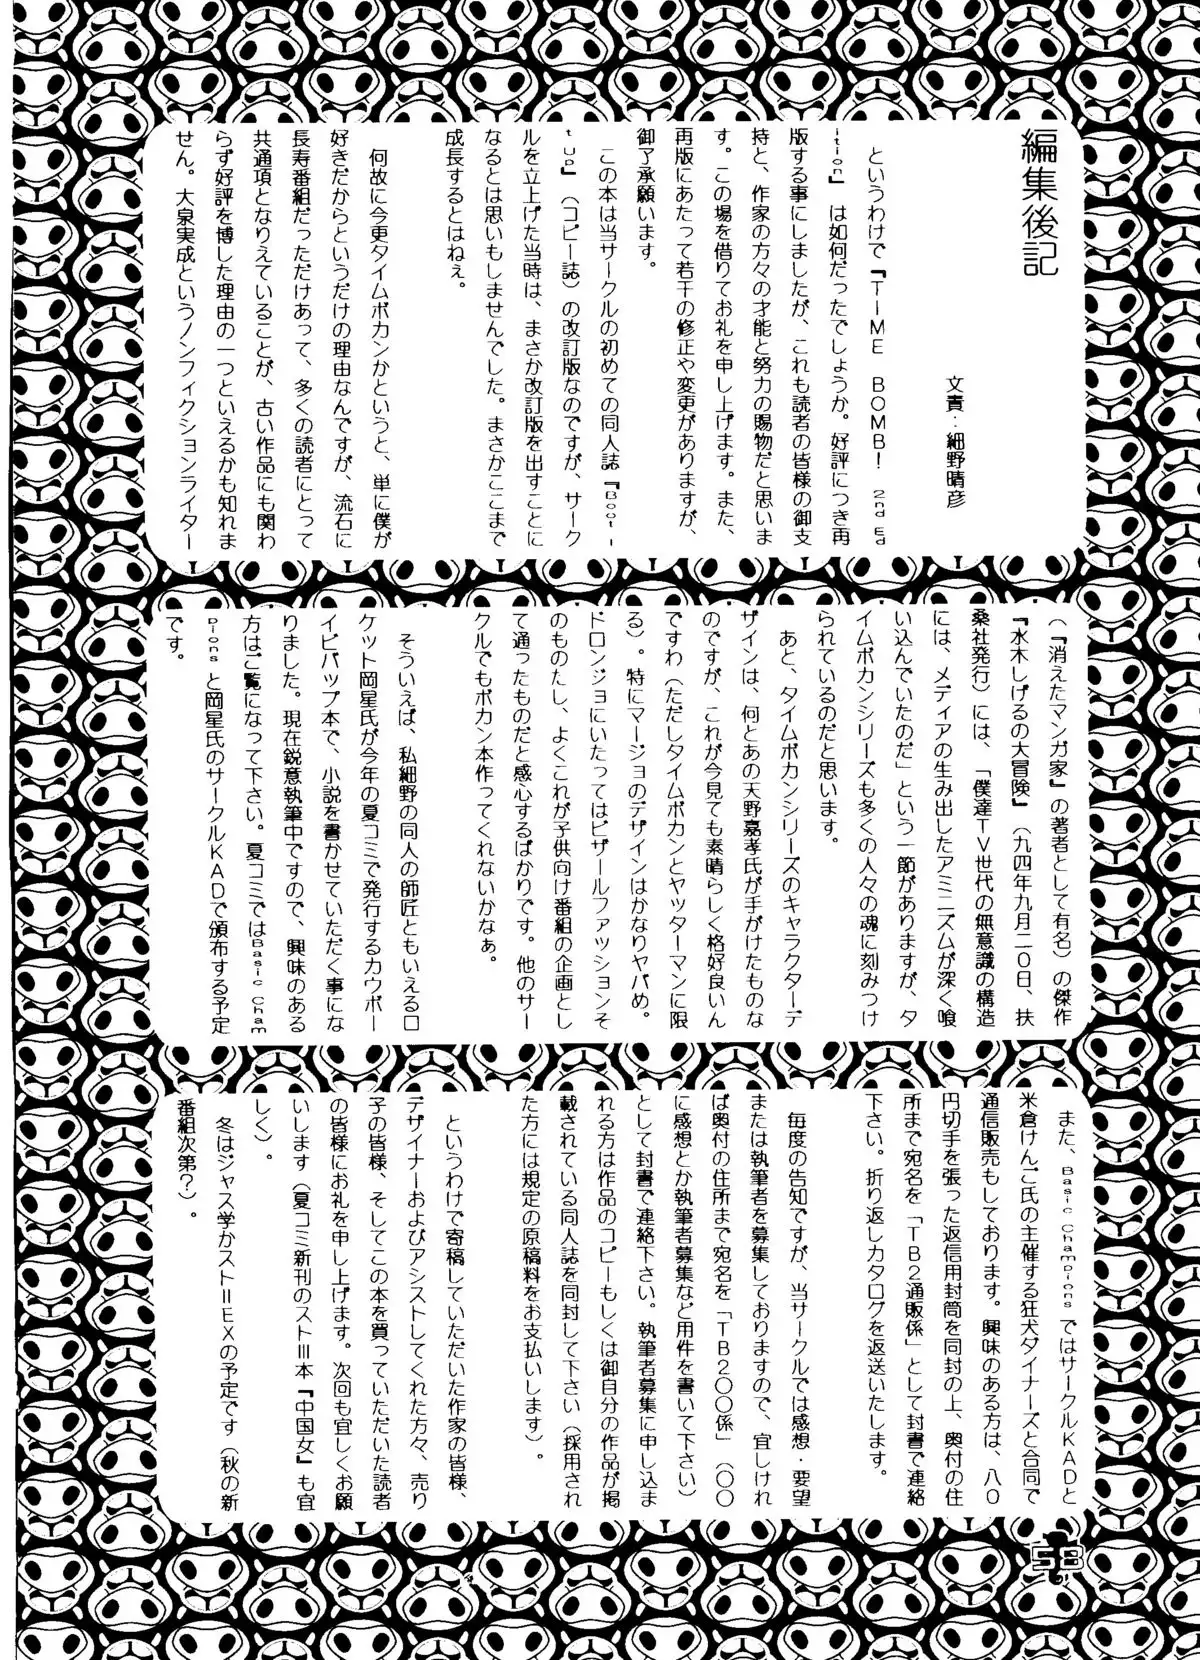 編集後記
文責：細野晴彦
というわけで『TIME BOMB! 2nd Ed
ition』は如何だったでしょうか。好評につき再
版する事にしましたが、これも読者の皆様の御支
持と、作家の方々の才能と努力の賜物だと思いま
す。この場を借りてお礼を申し上げます。また、
再版にあたって若干の修正や変更がありますが、
御了承願います。
この本は当サークルの初めての同人誌『Boot-
tup』（コピー誌）の改訂版なのですが、サーク
ルを立上げた当時は、まさか改訂版を出すことに
なるとは思いもしませんでした。まさかここまで
成長するとはねぇ。
何故に今更タイムボカンかというと、単に僕が
好きだからというだけの理由なんですが、流石に
長寿番組だっただけあって、多くの読者にとって
共通項となりえていることが、古い作品にも関わ
らず好評を博した理由の一つといえるかも知れま
せん。大泉実成というノンフィクションライター
（『消えたマンガ家』の著者として有名）の傑作
『水木しげるの大冒険』（九四年九月二〇日、扶
桑社発行）には、「僕達ＴＶ世代の無意識の構造
には、メディアの生み出したアミニズムが深く喰
い込んでいたのだ」という一節がありますが、タ
イムボカンシリーズも多くの人々の魂に刻みつけ
られているのだと思います。
あと、タイムボカンシリーズのキャラクターデ
ザインは、何とあの天野嘉孝氏が手がけたものな
のですが、これが今見ても素晴らしく格好良いん
ですわ（ただしタイムボカンとヤッターマンに限
る）。特にマージョのデザインはかなりヤバめ。
ドロンジョにいたってはビザールファッションそ
のものだし、よくこれが子供向け番組の企画とし
て通ったものだと感心するばかりです。他のサー
クルでもボカン本作ってくれないかなぁ。
そういえば、私細野の同人の師匠ともいえるロ
ケット岡星氏が今年の夏コミで発行するカウボー
イビバップ本で、小説を書かせていただく事にな
りました。現在鋭意執筆中ですので、興味のある
方はご覧になって下さい。夏コミではBasic Cham
pionsと岡星氏のサークルKADで頒布する予定
です。
また、Basic ChampionsではサークルKADと
米倉けんご氏の主催する狂犬ダイナーズと合同で
通信販売もしております。興味のある方は、八〇
円切手を張った返信用封筒を同封の上、奥付の住
所まで宛名を「ＴＢ２通販係」として封書で連絡
下さい。折り返しカタログを返送いたします。
毎度の告知ですが、当サークルでは感想・要望
または執筆者を募集しておりますので、宜しけれ
ば奥付の住所まで宛名を「ＴＢ２〇〇係」（〇〇
に感想とか執筆者募集など用件を書いて下さい）
として封書で連絡下さい。執筆者募集に申し込ま
れる方は作品のコピーもしくは御自分の作品が掲
載されている同人誌を同封して下さい（採用され
た方には規定の原稿料をお支払いします）。
というわけで寄稿していただいた作家の皆様、
デザイナーおよびアシストしてくれた方々、売り
子の皆様、そしてこの本を買っていただいた読者
の皆様にお礼を申し上げます。次回も宜しくお願
いします（夏コミ新刊のストⅢ本『中国女』も宜
しく）。
冬はジャス学かストⅡEXの予定です（秋の新
番組次第？）。
58